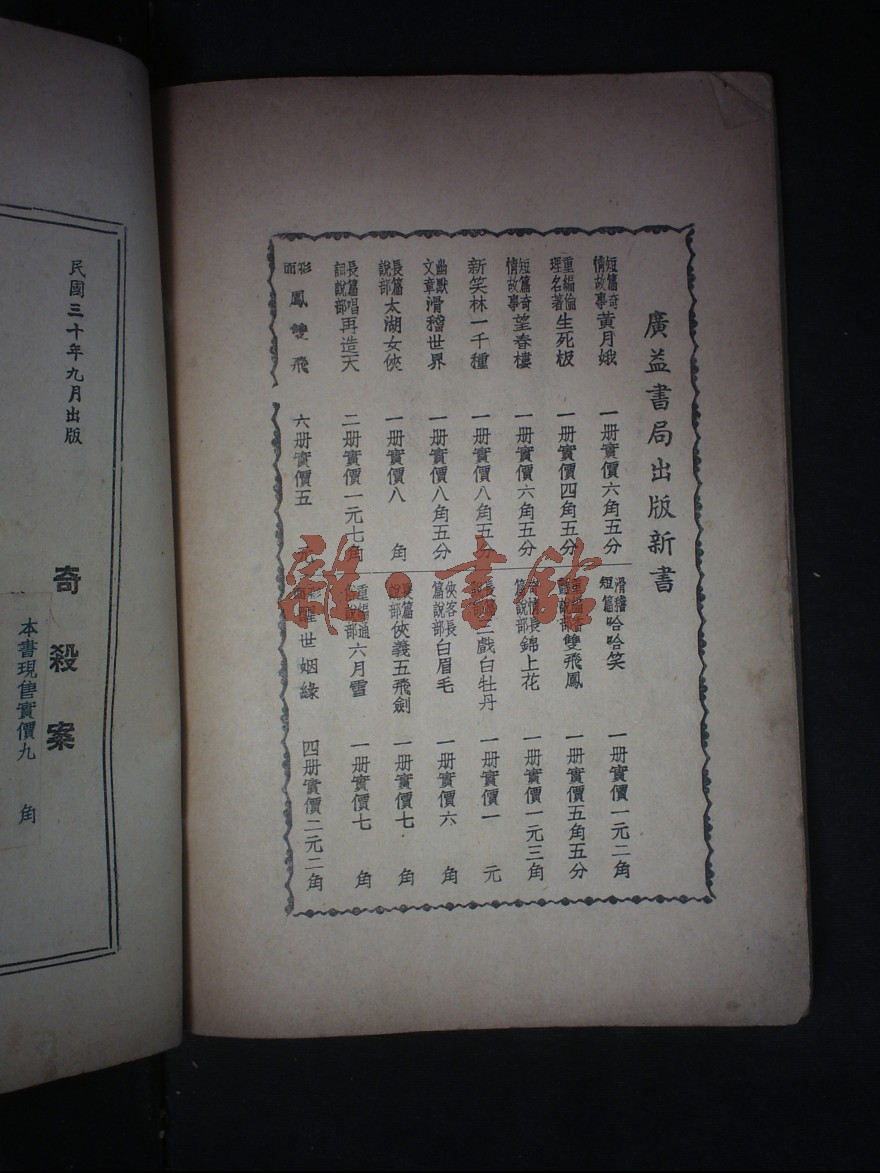 廣益書局出版新書
短篇奇情故事 黃月娥 一册實價六角五分
重編倫理名著 生死板 一册實價四角五分
短篇奇情故事 望春樓 一册實價六角五分
新笑林一千種 一册實價八角五分
幽默文章 滑稽世界 一册實價八角五分
長篇說部 太湖女俠 一册實價八角
長篇唱詞說部 再造天 二册實價一元七角
彩面 鳳雙飛 六册實價五元
滑稽短篇 哈哈笑 一册實價一元二角
說部 雙飛鳳 一册實價五角五分
奇情長篇說部 錦上花 一册實價一元三角
戲白牡丹 一册實價一元
俠客長篇說部 白眉毛 一册實價六角
長篇說部 俠義五飛劍 一册實價七角
重編通俗說部 六月雪 一册實價七角
彩面 醒世姻緣 四册實價二元二角
民國三十年九月出版
奇殺案
本書現售實價九角
誰·書館